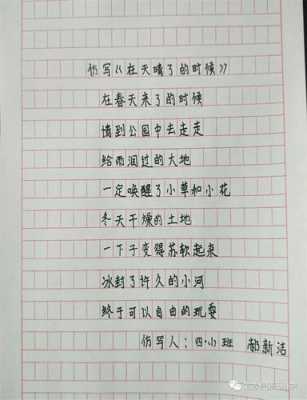 仿写《在天晴了的时候》
在春天来了的时候
请到公园中去走走
给雨润过的大地
一定唤醒了小草和小花
冬天干燥的土地
一下子变得苏软起来
冰封了许久的小河
终于可以自由的玩耍
仿写人：四·小班 郝新洁